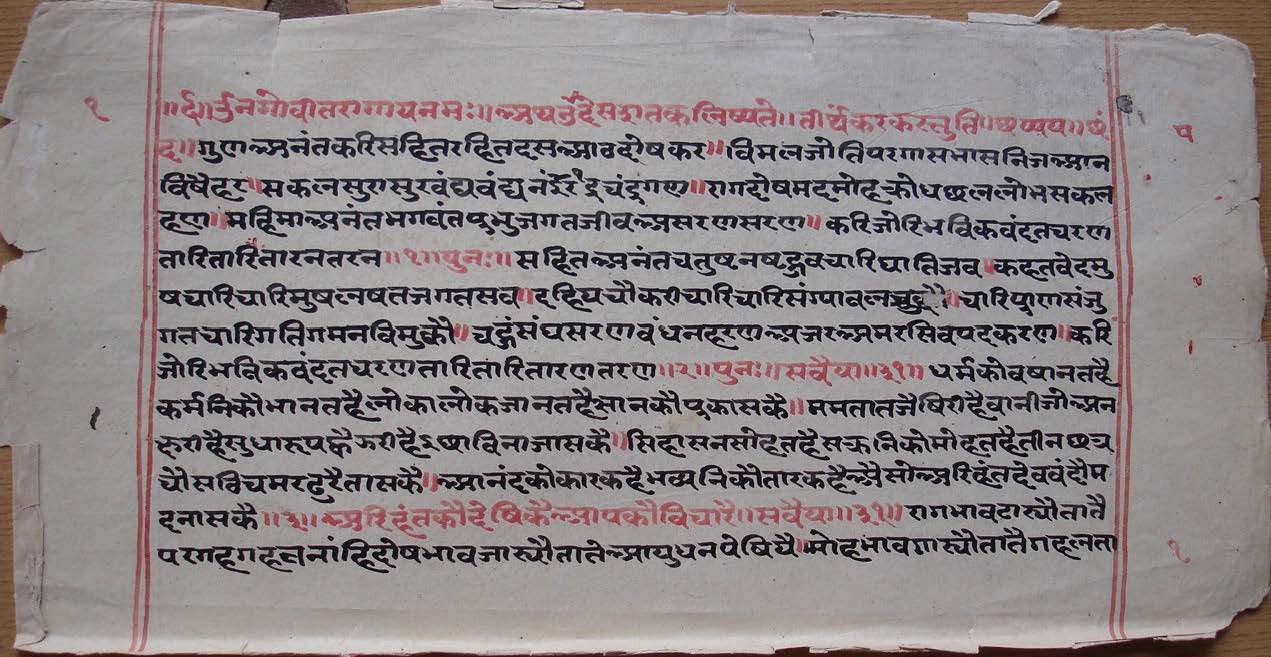 १
॥र्द॥ ॐ नमो वीतरागाय नमः॥ अथ उपदेसशतक लिष्यते॥ तीर्थंकर कर स्तुति॥ छप्पय॥ छं
द॥ गुण अनंत करि सहित रहित दस आठ दोष कर॥ विमल जोति परगास भास निज आन
विषै हर॥ सकल सुरासुर वंद्य वंद्य इंद्र चंद्र गण॥ राग दोष मद मोह क्रोध छल लोभ सकल
हण॥ महिमा अनंत भगवंत प्रभु जगत जीव असरण सरण॥ करि जोरि भविक वंदत चरण
तारि तारि तारन तरन॥१॥ पुनः॥ सहित अनंत चतुष नष द्भव चारि घाति जव॥ कहत वेद मु
ष चारि चारि मुष लषत जगत सव॥ दहिय चौकरी चारि चारि संग्या वल॥ चारि प्राण संजु
गत चारि गति गमन विमुक्कौ॥ चहुं संघ सरण वंधन हरण अजर अमर सिव पद करण॥ करि
जोरि भविक वंदत चरण तारि तारि तारण तरण॥२॥ पुनः॥ सवैया॥३१॥ धर्म को वषानत है
कर्मनि कौ भानत है लोकालोक जानत है ग्यान कौ प्रकास कै॥ ममता तजै षिरी है वानी जो अन
हरी है सुधा रूप ह्वै झरी है इछा विना जास कै॥ सिंहासन सोहत है सक्रनि को मोहत है तीन छत्र
चौसठि चमर ढुरै तास कै॥ आनंद को कारक है भव्यनि कौ तारक है असो अरिहंत देव वंदौ म
द नास कै॥३॥ अरिहंत कौ देषि कै आप कौ विचारै॥ सवैया॥३१॥ राग भाव टास्यौ तातै
पर गह गहल नांहि दोष भाव जास्यौ तातै आयुध न पेषियै॥ मोह भाव गास्यौ तातै गहलता
१